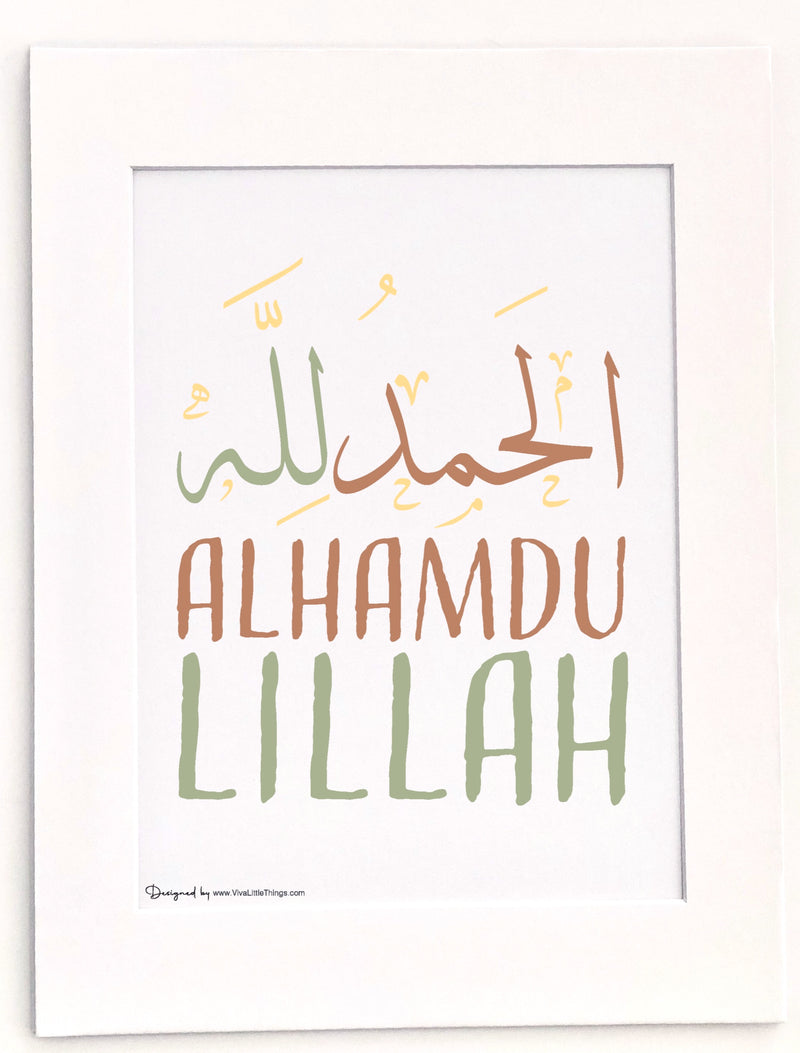 الحَمدُ لِلَّه
ALHAMDU
LILLAH
Designed by www.VivaLittleThings.com